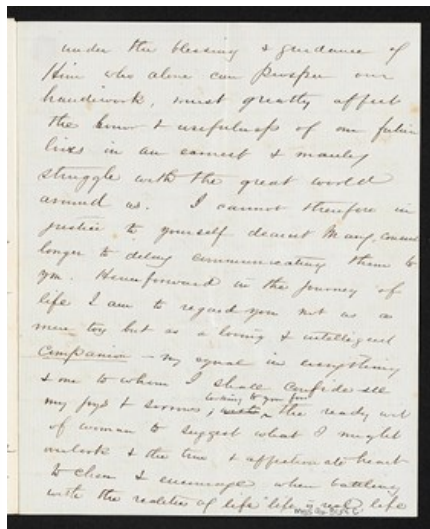 under the blessing & guidance of
Him who alone can prosper our
handiwork, must greatly affect
the honor & usefulness of our future
lives in an earnest & manly
struggle with the great world
around us. I cannot therefore in
justice to yourself dearest Mary, consent
longer to delay communicating them to
you. Henceforward in the journey of
life I am to regard you not as a
mere toy but as a loving & intelligent
Companion - my equal in everything
& one to whom I shall confide all
my joys & sorrows, looking to you for the ready wit
of woman to suggest what I might
overlook & the true & affectionate heart
to cheer & encourage when battling
with the realities of life life - real life